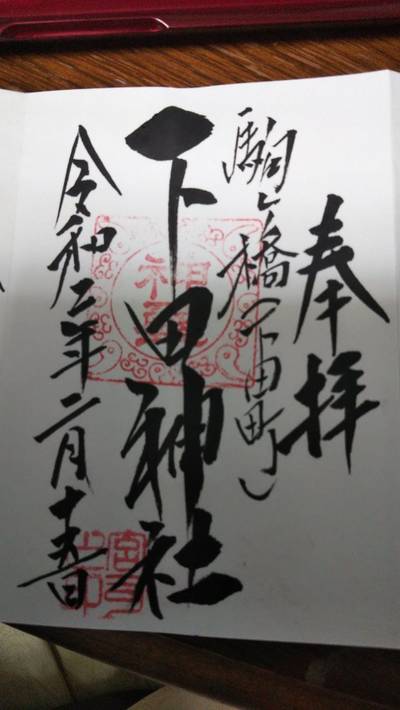 奉拝
駒ヶ橋(下田町)
下田神社
令和二年二月十五日
宮司
之印